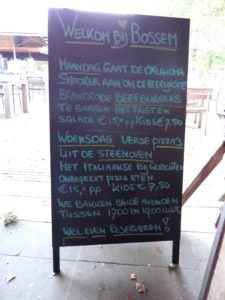 WELKOM BIJ BOSSEM
MAANDAG GAAT DE OKLAHOMA
SMOKER AAN OM DE HEERLIJKSTE
BRANDRODE BEEFBURGERS
TE BAKKEN MET FRIETEN
SALADE €15,- pp KIDS €7,50
WOENSDAG VERSE PIZZA'S
UIT DE STEENOVEN
HET ITALIAANSE BIJ GERECHTEN
ONBEPERKT PIZZA ETEN
€15,- pp KIDS €7,50
WE BAKKEN BEIDE AVONDEN
TUSSEN 17.00 EN 19.00 UUR
WEL EVEN RESERVEREN!